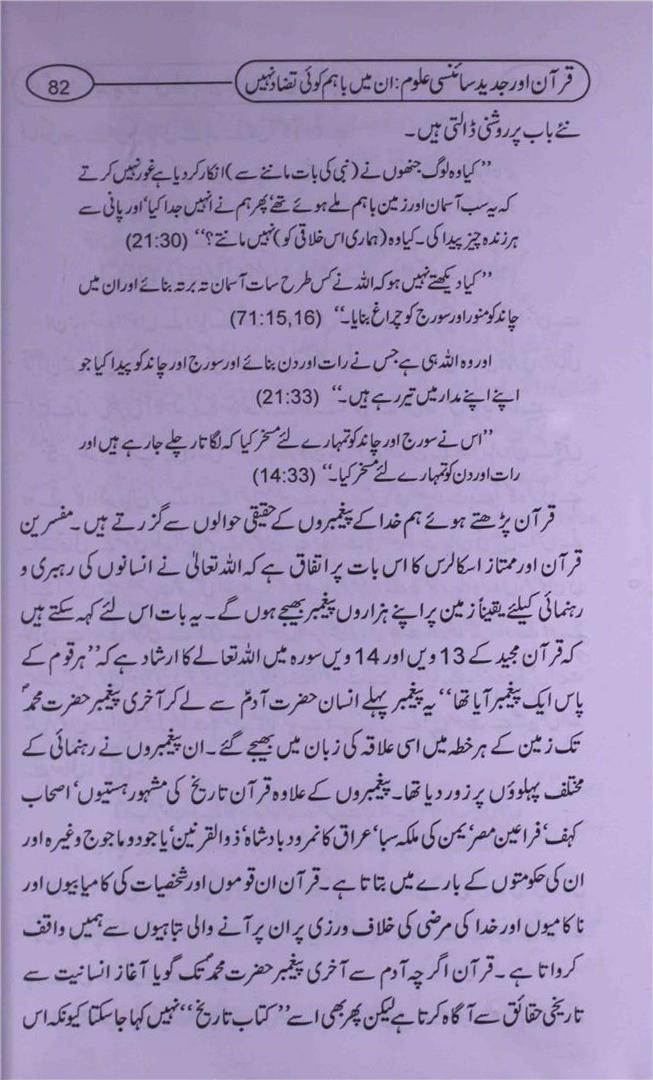 82 قرآن اور جدید سائنسی علوم: ان میں باہم کوئی تضاد نہیں
نئے باب پر روشنی ڈالتی ہیں۔
’’کیا وہ لوگ جنھوں نے (نبی کی بات ماننے سے) انکار کر دیا ہے غور نہیں کرتے
کہ یہ سب آسمان اور زمین باہم ملے ہوئے تھے‘ پھر ہم نے انہیں جدا کیا‘ اور پانی سے
ہر زندہ چیز پیدا کی۔ کیا وہ (ہماری اس خلاقی کو) نہیں مانتے؟‘‘ (21:30)
’’کیا دیکھتے نہیں ہو کہ اللہ نے کس طرح سات آسمان تہ برتہ بنائے اور ان میں
چاند کو منور اور سورج کو چراغ بنایا۔‘‘ (71:15,16)
اور وہ اللہ ہی ہے جس نے رات اور دن بنائے اور سورج اور چاند کو پیدا کیا جو
اپنے اپنے مدار میں تیر رہے ہیں۔‘‘ (21:33)
’’اس نے سورج اور چاند کو تمہارے لئے مسخر کیا کہ لگاتار چلے جارہے ہیں اور
رات اور دن کو تمہارے لئے مسخر کیا۔‘‘ (14:33)
قرآن پڑھتے ہوئے ہم خدا کے پیغمبروں کے حقیقی حوالوں سے گزرتے ہیں۔ مفسرین
قرآن اور ممتاز اسکالرس کا اس بات پر اتفاق ہے کہ اللہ تعالیٰ نے انسانوں کی رہبری و
رہنمائی کیلئے یقیناً زمین پر اپنے ہزاروں پیغمبر بھیجے ہوں گے۔ یہ بات اس لئے کہہ سکتے ہیں
کہ قرآن مجید کے 13 ویں اور 14 ویں سورہ میں اللہ تعالے کا ارشاد ہے کہ ’’ہر قوم کے
پاس ایک پیغمبر آیا تھا‘‘ یہ پیغمبر پہلے انسان حضرت آدمؑ سے لے کر آخری پیغمبر حضرت محمدؐ
تک زمین کے ہر خطہ میں اسی علاقہ کی زبان میں بھیجے گئے۔ ان پیغمبروں نے رہنمائی کے
مختلف پہلوؤں پر زور دیا تھا۔ پیغمبروں کے علاوہ قرآن تاریخ کی مشہور ہستیوں‘ اصحاب
کہف‘ فراعین مصر‘ یمن کی ملکہ سبا‘ عراق کا نمرود بادشاہ‘ ذوالقرنین‘ یاجود و ماجوج وغیرہ اور
ان کی حکومتوں کے بارے میں بتاتا ہے۔ قرآن ان قوموں اور شخصیات کی کامیابیوں اور
ناکامیوں اور خدا کی مرضی کی خلاف ورزی پر ان پر آنے والی تباہیوں سے ہمیں واقف
کرواتا ہے۔ قرآن اگر چہ آدم سے آخری پیغمبر حضرت محمدؐ تک گویا آغاز انسانیت سے
تاریخی حقائق سے آگاہ کرتا ہے لیکن پھر بھی اسے ’’کتاب تاریخ‘‘ نہیں کہا جاسکتا کیونکہ اس